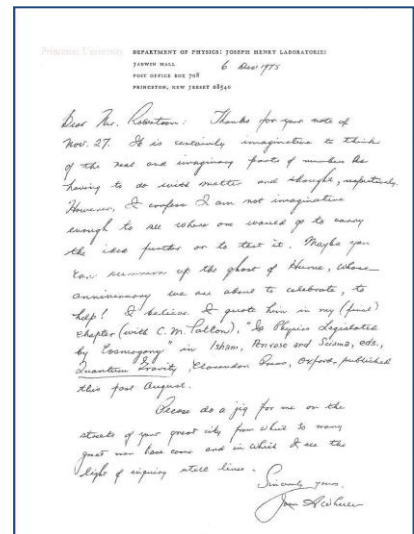 Princeton University DEPARTMENT OF PHYSICS: JOSEPH HENRY LABORATORIES
JADWIN HALL
POST OFFICE BOX 708
PRINCETON, NEW JERSEY 08540
6 Dec 1975
Dear Mr. Robertson: Thanks for your note of
Nov. 27. It is certainly imaginative to think
of the real and imaginary parts of numbers as
having to do with matter and thought, respectively.
However, I confess I am not imaginative
enough to see where one would go to carry
the idea further or to test it. Maybe you
can summon up the ghost of Hume, whose
anniversary we are about to celebrate, to
help! I believe I quote him in my (final)
chapter (with C. M. Patton), "Is Physics Legislated
by Cosmogony" in Isham, Penrose and Sciama, eds.,
Quantum Gravity, Clarendon Press, Oxford, published
this past August.
Please do a jig for me on the
streets of your great city from which so many
great men have come and in which I see the
light of inquiry still lives.
Sincerely yours,
John A Wheeler